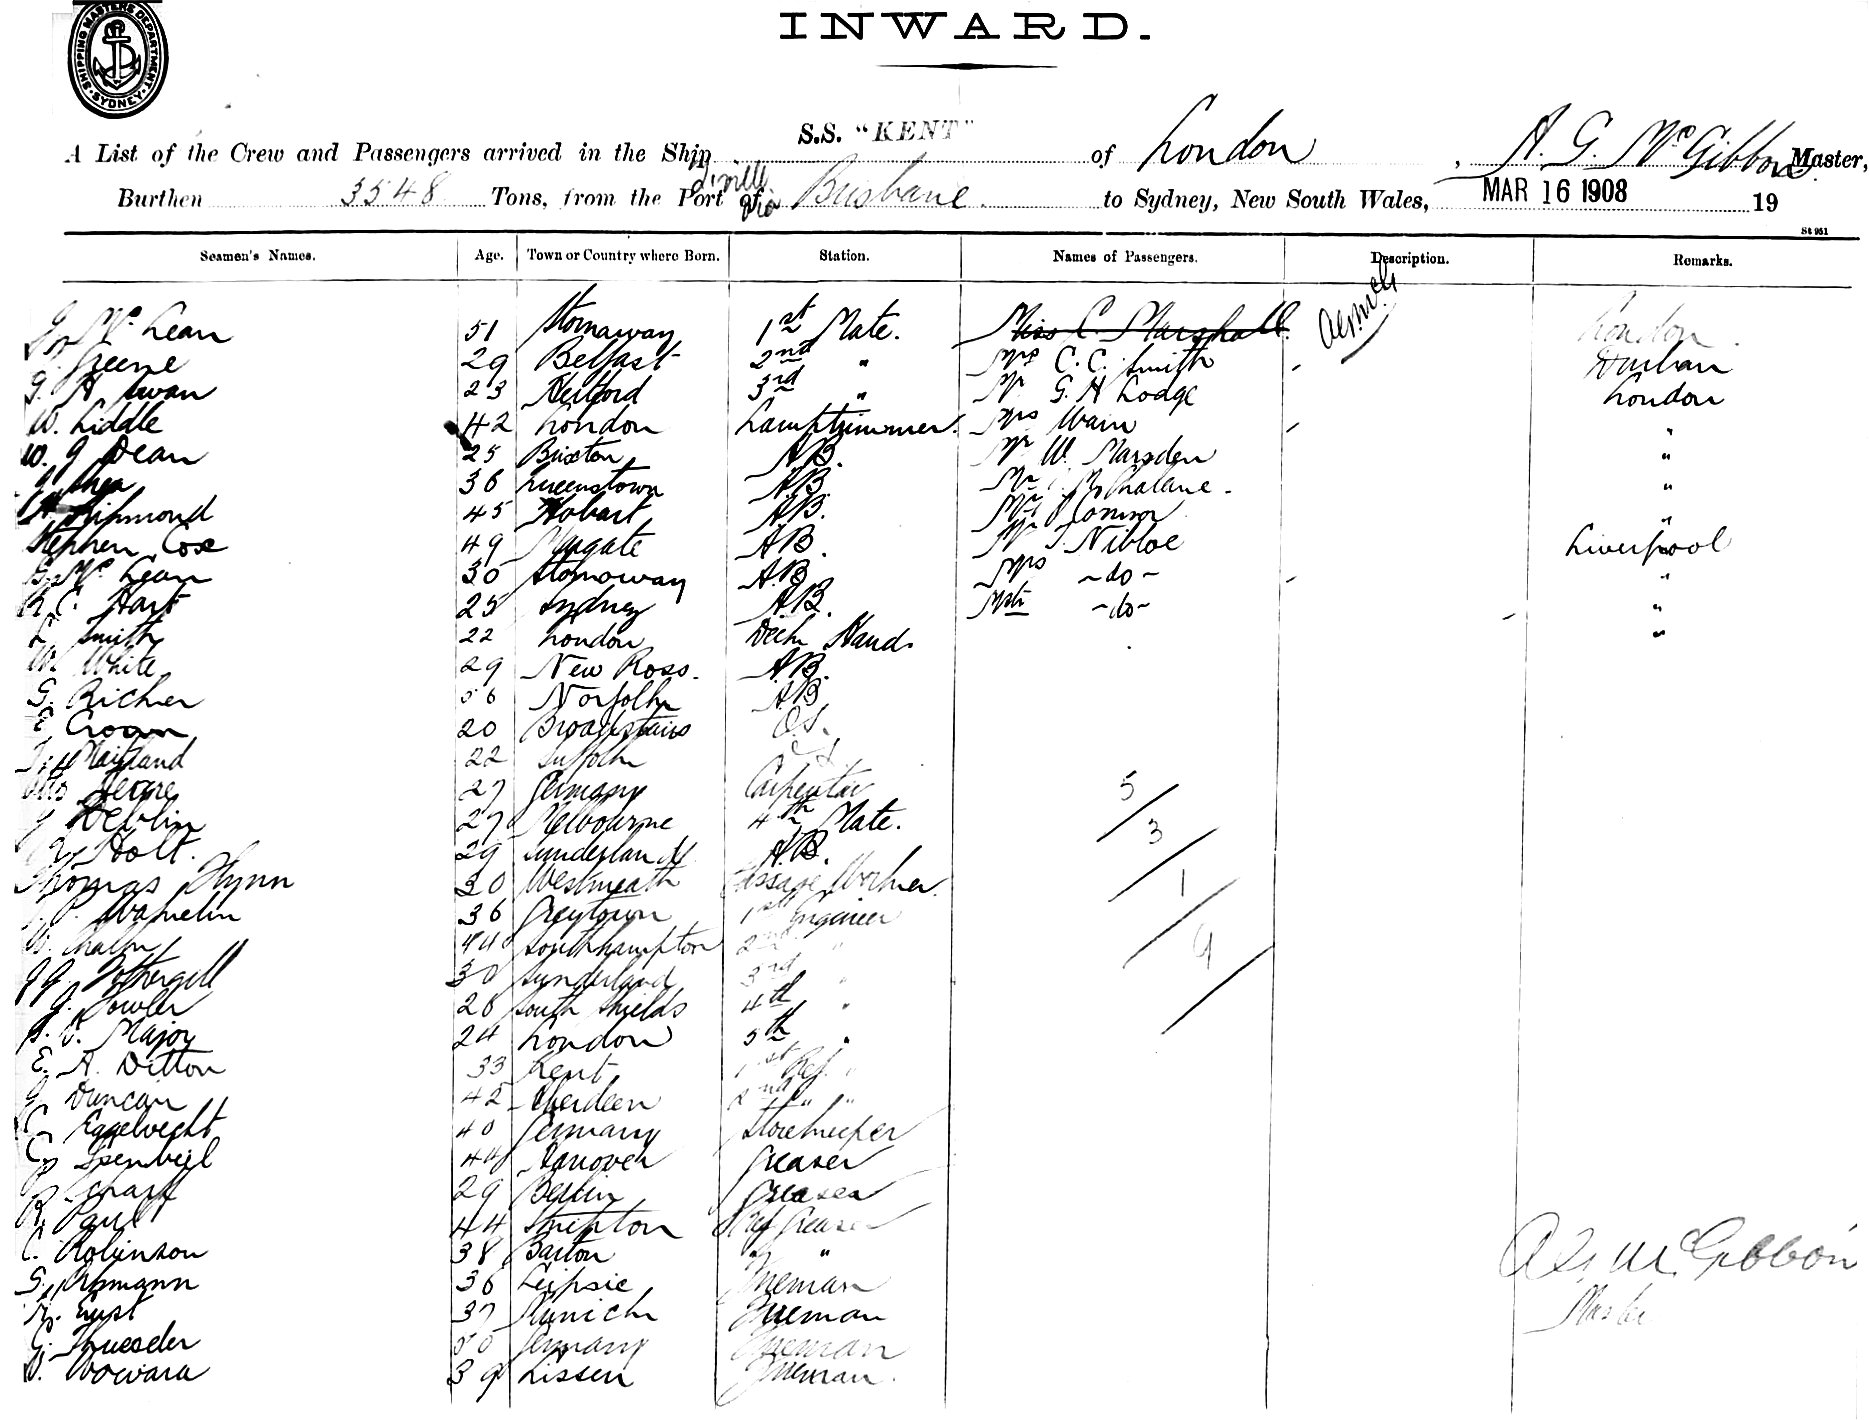 INWARD.
SHIPPING MASTERS DEPARTMENT
SYDNEY
S.S. "KENT"
A List of the Crew and Passengers arrived in the Ship of London, A. G. McGibbon Master,
Burthen 3548 Tons, from the Port of via Brisbane to Sydney, New South Wales, MAR 16 1908 19
St 951
Seamen's Names. Age. Town or Country where Born. Station. Names of Passengers. Description. Remarks.
Mc Lean 51 Stornaway 1st Mate. Miss C. Marshall London
Greene 29 Belfast 2nd " Mrs C. C. Smith Durban
G. H Swan 23 Retford 3rd " Mr G. H Lodge London
W. Liddle 42 London Lamptrimmer. Mrs Wain "
W. J Dean 25 Brixton AB. Mr W. Marsden "
Shea 36 Queenstown AB. Mr "
Richmond 45 Hobart AB. "
Stephen Cose 49 Margate AB. Mr T. Nibloe Liverpool
Mc Lean 30 Stornoway AB Mrs ~do~ "
R. C. Hart 25 Sydney AB. Mstr ~do~ "
Smith 22 London Deck Hand. "
W. White 29 New Ross. AB.
G. Richer 56 Norfolk AB
E Crogan 20 Broadstairs O.S.
Maitland 22 Suffolk
Otto 27 Germany Carpenter 5
Devlin 27 Melbourne 4th Mate. 3
Holt. 29 Sunderland A.B.
Thomas Flynn 30 Westmeath Passage Worker. 1
36 Greytown 1st Engineer
44 Southhampton 2nd " 9
Fothergill 30 Sunderland 3rd "
J. Fowler 26 South Shields 4th "
Major 24 London 5th "
E. A. Ditton 33 Kent 1st Ref. "
Duncan 42 Aberdeen 2nd " "
Eggelvecht 40 Germany Storekeeper
44 Hanover Greaser
29 Berlin Greaser
R. Paul 44 Ref Greaser
C. Robinson 38 Barton " "
36 Leipsic Fireman A. G. McGibbon
37 Munich Fireman Master
G. 50 Germany Fireman
39 Lissen Fireman.